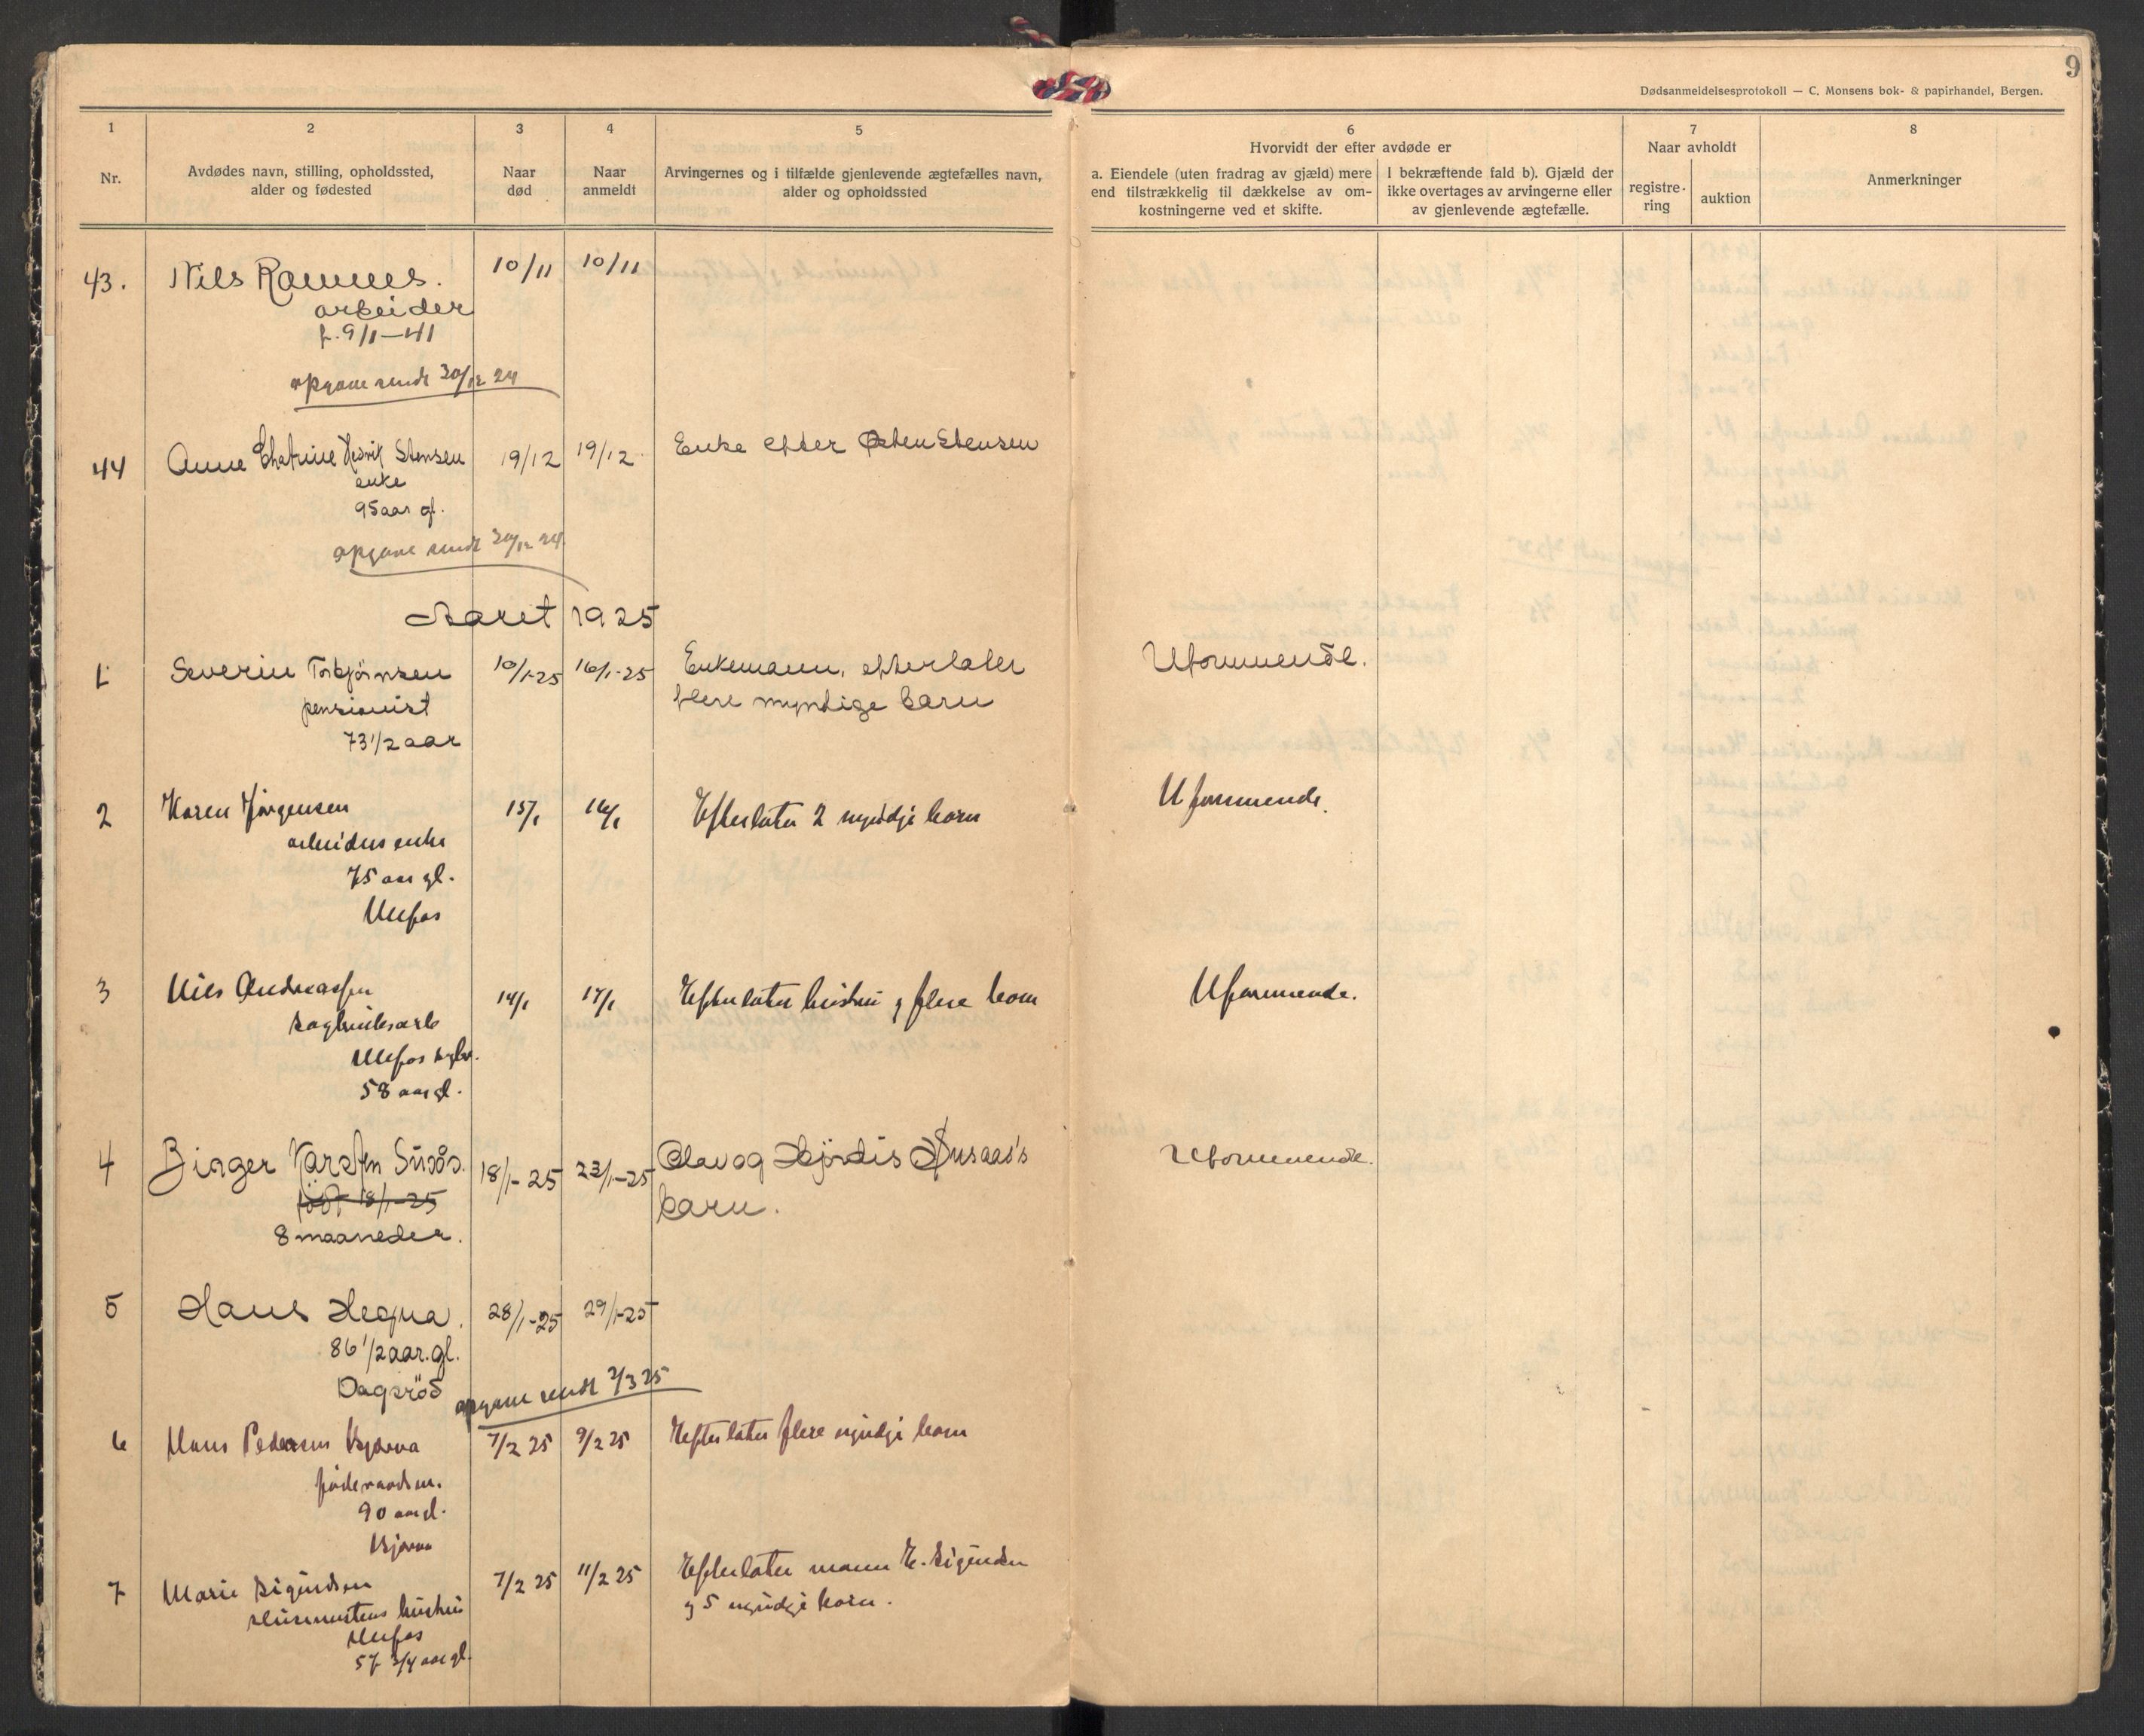 9
Dødsanmeldelsesprotokoll — C. Monsens bok- & papirhandel, Bergen.
1
Nr.
2
Avdødes navn, stilling, opholdssted,
alder og fødested
3
Naar
død
4
Naar
anmeldt
5
Arvingernes og i tilfælde gjenlevende ægtefælles navn,
alder og opholdssted
6
Hvorvidt der efter avdøde er
a. Eiendele (uten fradrag av gjæld) mere
end tilstrækkelig til dækkelse av om-
kostningerne ved et skifte.
I bekræftende fald b). Gjæld der
ikke overtages av arvingerne eller
av gjenlevende ægtefælle.
7
Naar avholdt
registre-
ring
auktion
8
Anmerkninger
43. Nils Romnes. 10/11 10/11
arbeider
f. 9/1-41
opgave sendt 30/12 24
44 Anne Chatrine Stensen 19/12 19/12 Enke efter Østen Stensen
enke
95 aar gl.
opgave sendt 30/12 24
Aaret 1925
1. Severin Torbjørnsen 10/1-25 16/1-25 Enkemann, efterlater Uformuende.
pensionist flere myndige barn
73 1/2 aar
2 Karen Jørgensen 15/1 16/1 Efterlater 2 myndige barn Uformuende.
arbeiders enke
75 aar gl.
Ulefos
3 Nils Andreassen 14/1 17/1 Efterlater hustru og flere barn Uformuende.
sagbruksarb
Ulefos
58 aar gl.
4 Birger Karsten 18/1-25 23/1-25 Olav og Hjördis Susaas's Uformuende.
født 18/1-25 barn.
8 maaneder.
5 Hans Hegna. 28/1-25 29/1-25
86 1/2 aar. gl.
Dagsröd
opgave sendt 2/3 25
6 Hans Pedersen Kjærra 7/2 25 9/2 25 Efterlater flere myndige barn
føderaadsm.
90 aar gl.
Kjærra
7 Marie Sigurdsen 7/2 25 11/2 25 Efterlater mann E. Sigurdsen
hustru og 5 myndige barn.
Ulefos
57 3/4 aar gl.